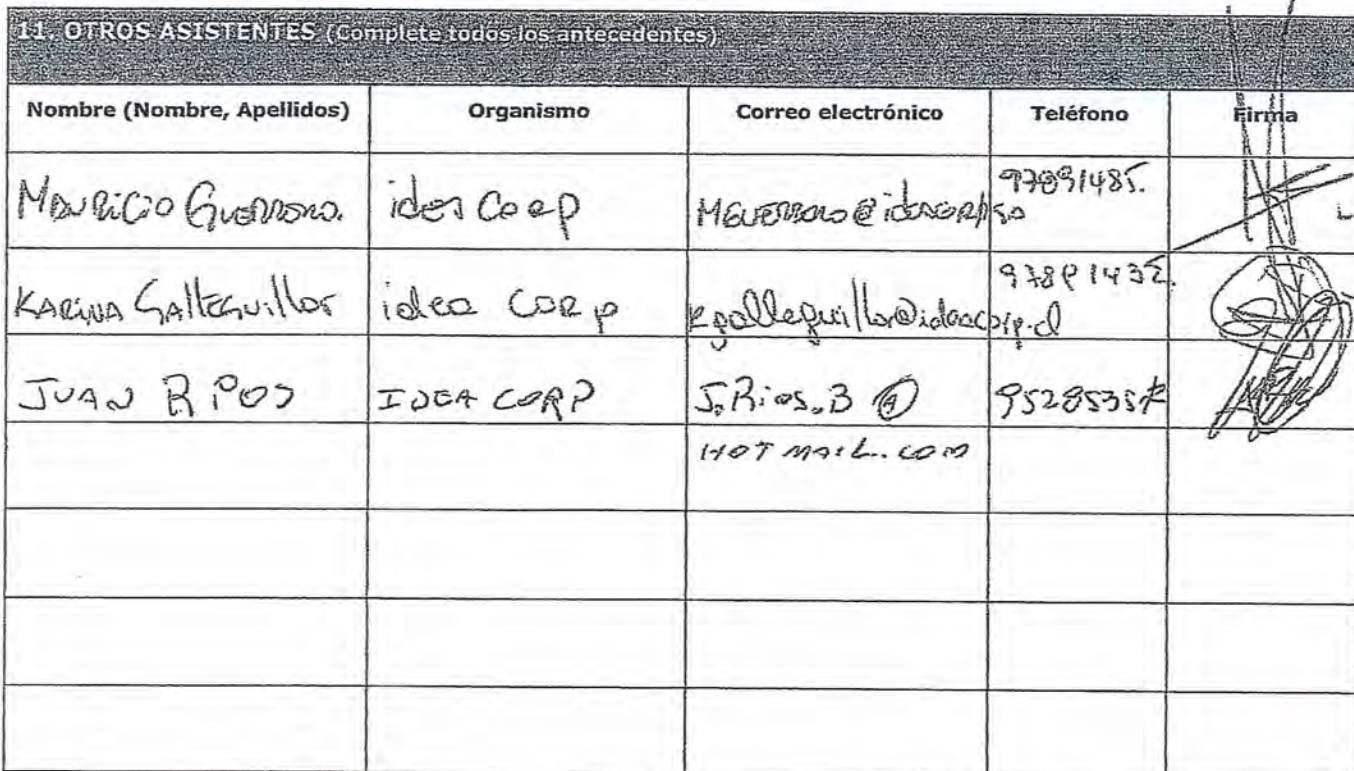 11. OTROS ASISTENTES (Complete todos los antecedentes)
Nombre (Nombre, Apellidos) Organismo Correo electrónico Teléfono Firma
MAURICIO GUERRERO. idea Corp 97891485.
KARINA GALLEGUILLOS idea CORP kgalleguillos@ideacorp.cl
JUAN RIOS IDEA CORP J.Rios.B @
HOTMAIL.COM